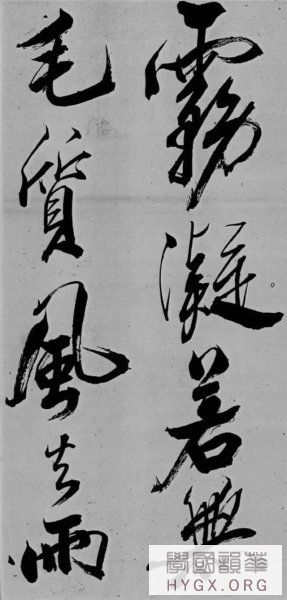 霧凝若無
毛質風去雨
華韻國學
HYGX.ORG